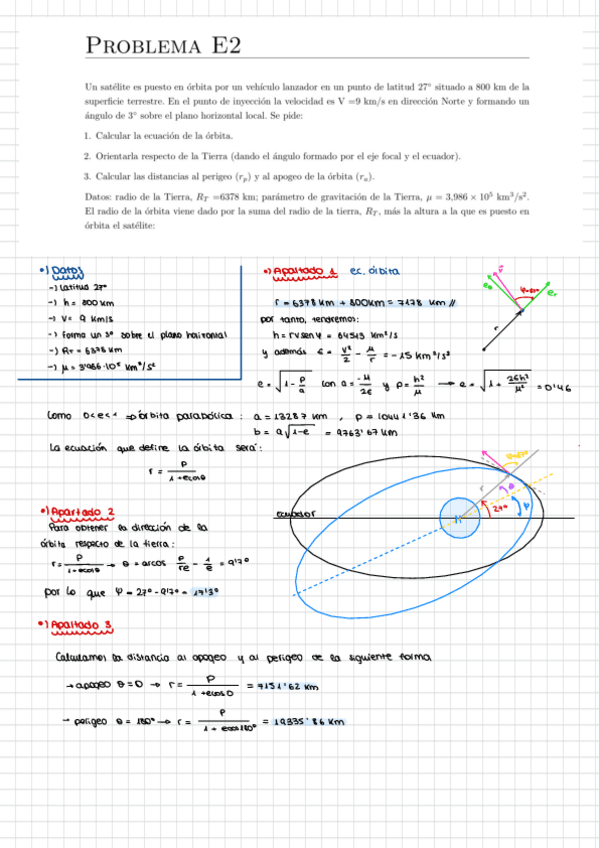 PROBLEMA E2
Un satélite es puesto en órbita por un vehículo lanzador en un punto de latitud 27° situado a 800 km de la
superficie terrestre. En el punto de inyección la velocidad es V =9 km/s en dirección Norte y formando un
ángulo de 3° sobre el plano horizontal local. Se pide:
1. Calcular la ecuación de la órbita.
2. Orientarla respecto de la Tierra (dando el ángulo formado por el eje focal y el ecuador).
3. Calcular las distancias al perigeo (r_p) y al apogeo de la órbita (r_a).
Datos: radio de la Tierra, R_T =6378 km; parámetro de gravitación de la Tierra, μ = 3,986 × 10⁵ km³/s².
El radio de la órbita viene dado por la suma del radio de la tierra, R_T, más la altura a la que es puesto en
órbita el satélite:
•) Datos
-) Latitud 27°
-) h = 800 km
-) V = 9 km/s
-) Forma un 3° sobre el plano horizontal
-) R_T = 6378 km
-) μ = 3'986·10⁵ km³/s²
•) Apartado 1 ec. órbita
r = 6378 km + 800km = 7178 km //
por tanto, tendremos:
h = rv senφ = 64513 km²/s
y además ε = v²/2 - μ/r = -15 km²/s²
e = √(1 - p/a) con a = -μ/2ε y p = h²/μ → e = √(1 + 2εh²/μ²) = 0'46
Como 0<e<1 ⇒ órbita parabólica : a = 13287 km , p = 10441'36 km
b = a√(1-e) = 9763'67 km
La ecuación que define la órbita será:
r = p/(1+ecosθ)
ecuador
27°
θ
φ
r
•) Apartado 2
Para obtener la dirección de la
órbita respecto de la tierra:
r = p/(1+ecosθ) → θ = arcos p/re - 1/e = 9'17°
por lo que φ = 27° - 9'17° = 17'13°
•) Apartado 3
Calculamos la distancia al apogeo y al perigeo de la siguiente forma
→ apogeo θ=0 → r = p/(1+ecos0) = 7151'62 km
→ perigeo θ = 180° → r = p/(1+ecos180°) = 19335'86 km